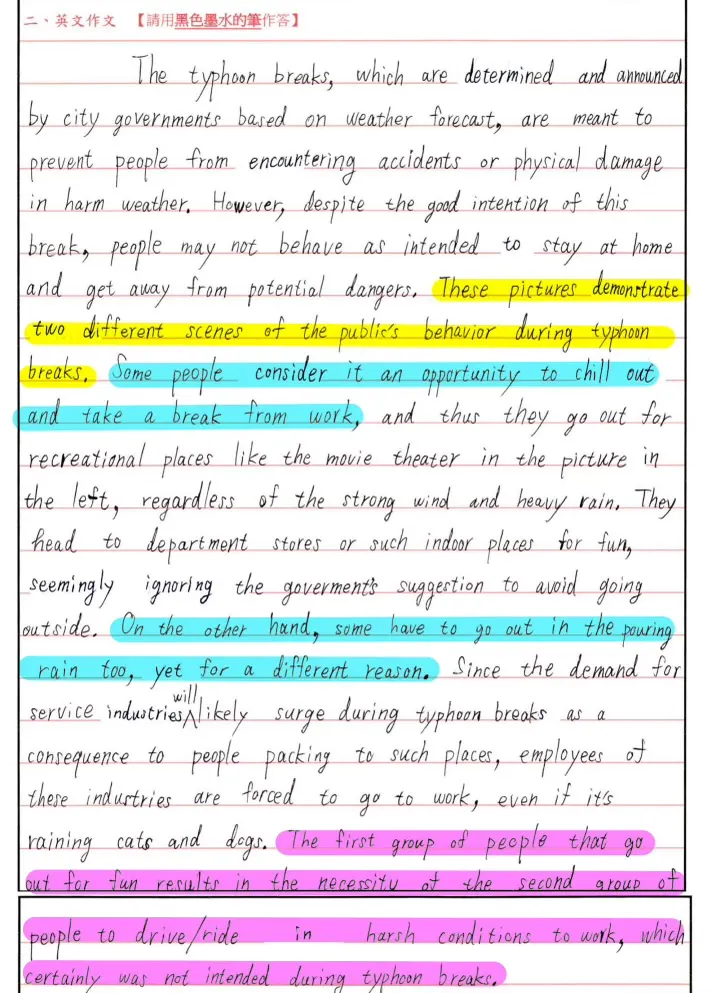 二、英文作文 【請用黑色墨水的筆作答】
The typhoon breaks, which are determined and announced
by city governments based on weather forecast, are meant to
prevent people from encountering accidents or physical damage
in harm weather. However, despite the good intention of this
break, people may not behave as intended to stay at home
and get away from potential dangers. These pictures demonstrate
two different scenes of the public's behavior during typhoon
breaks. Some people consider it an opportunity to chill out
and take a break from work, and thus they go out for
recreational places like the movie theater in the picture in
the left, regardless of the strong wind and heavy rain. They
head to department stores or such indoor places for fun,
seemingly ignoring the goverment's suggestion to avoid going
outside. On the other hand, some have to go out in the pouring
rain too, yet for a different reason. Since the demand for
service industries will likely surge during typhoon breaks as a
consequence to people packing to such places, employees of
these industries are forced to go to work, even if it's
raining cats and dogs. The first group of people that go
out for fun results in the necessity of the second group of
people to drive/ride in harsh conditions to work, which
certainly was not intended during typhoon breaks.